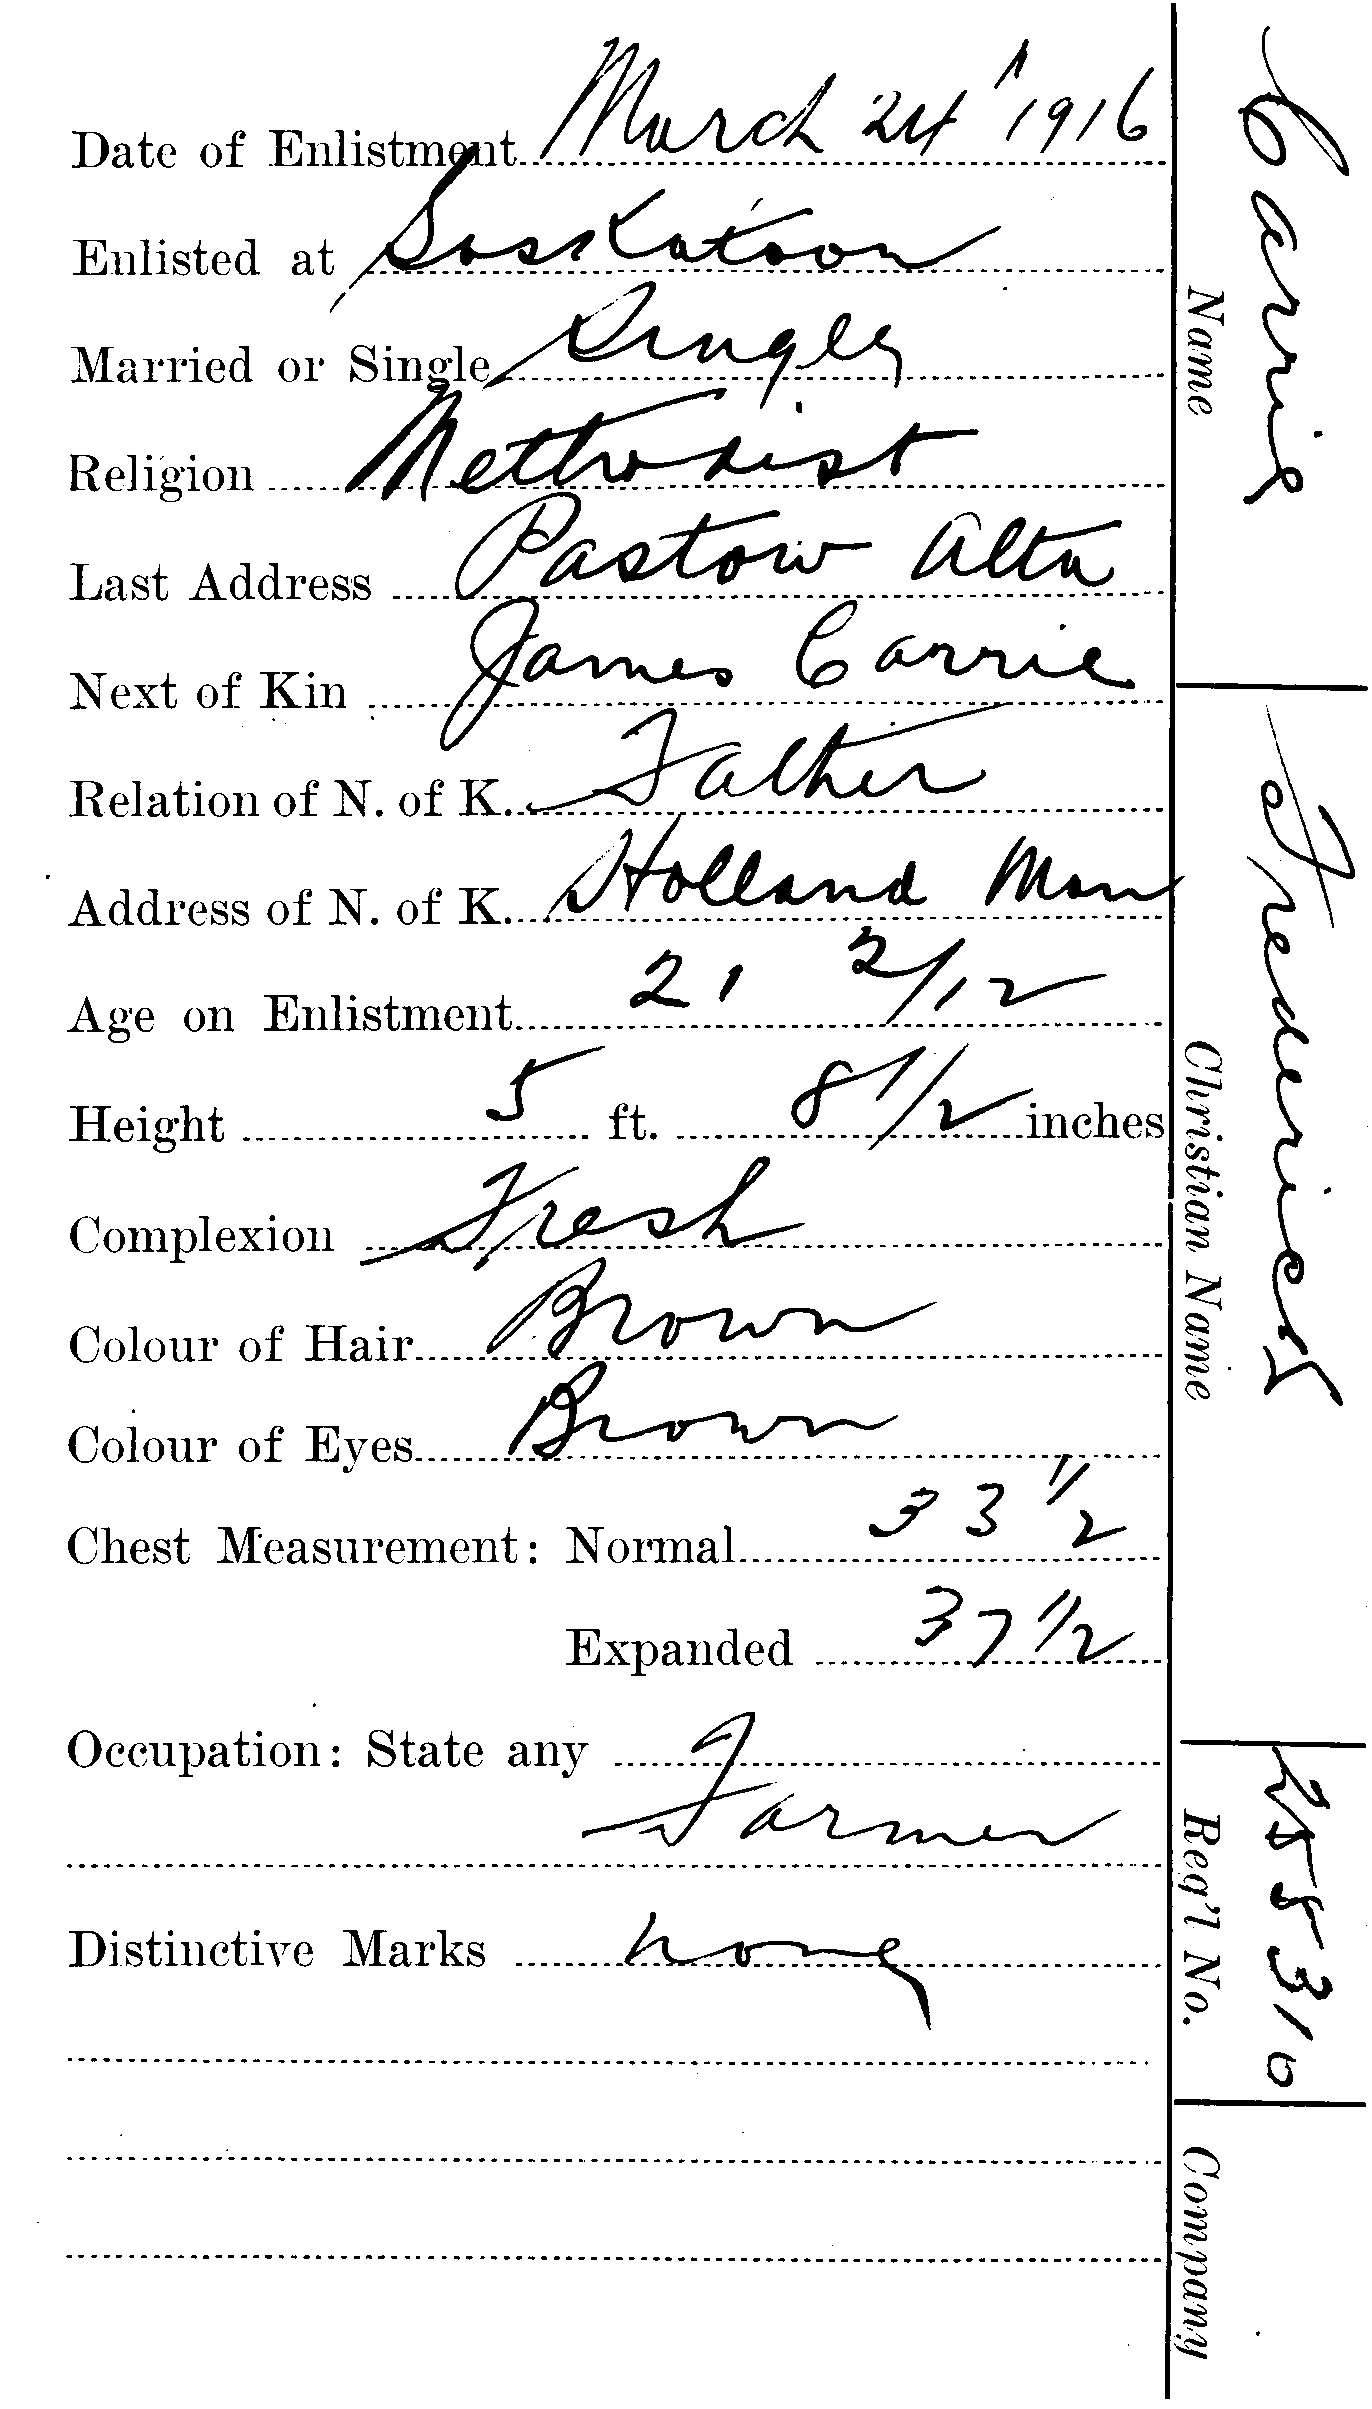 Date of Enlistment March 24 1916
Enlisted at Saskatoon
Married or Single Single
Religion Methodist
Last Address Pastow Alta
Next of Kin James Carrie
Relation of N. of K. Father
Address of N. of K. Holland Man
Age on Enlistment 21 2/12
Height 5 ft. 8 1/2 inches
Complexion Fresh
Colour of Hair Brown
Colour of Eyes Brown
Chest Measurement: Normal 33 1/2
Expanded 37 1/2
Occupation: State any
Farmer
Distinctive Marks none
Carrie
Name
Frederick
Christian Name
255310
Reg'l No.
Company